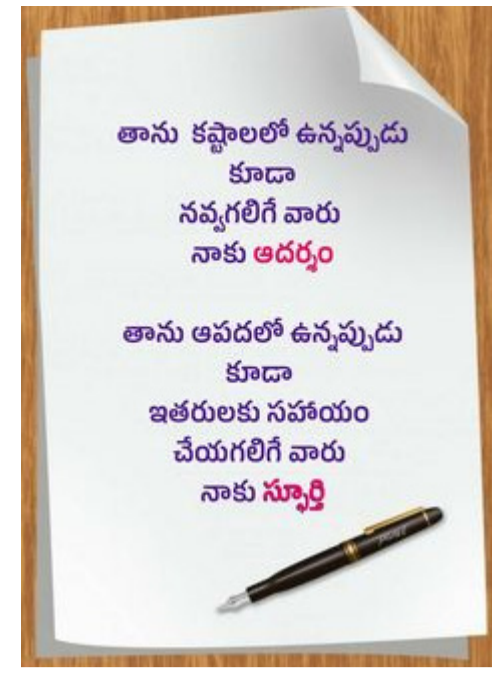 తాను కష్టాలలో ఉన్నప్పుడు
కూడా
నవ్వగలిగే వారు
నాకు ఆదర్శం
తాను ఆపదలో ఉన్నప్పుడు
కూడా
ఇతరులకు సహాయం
చేయగలిగే వారు
నాకు స్ఫూర్తి